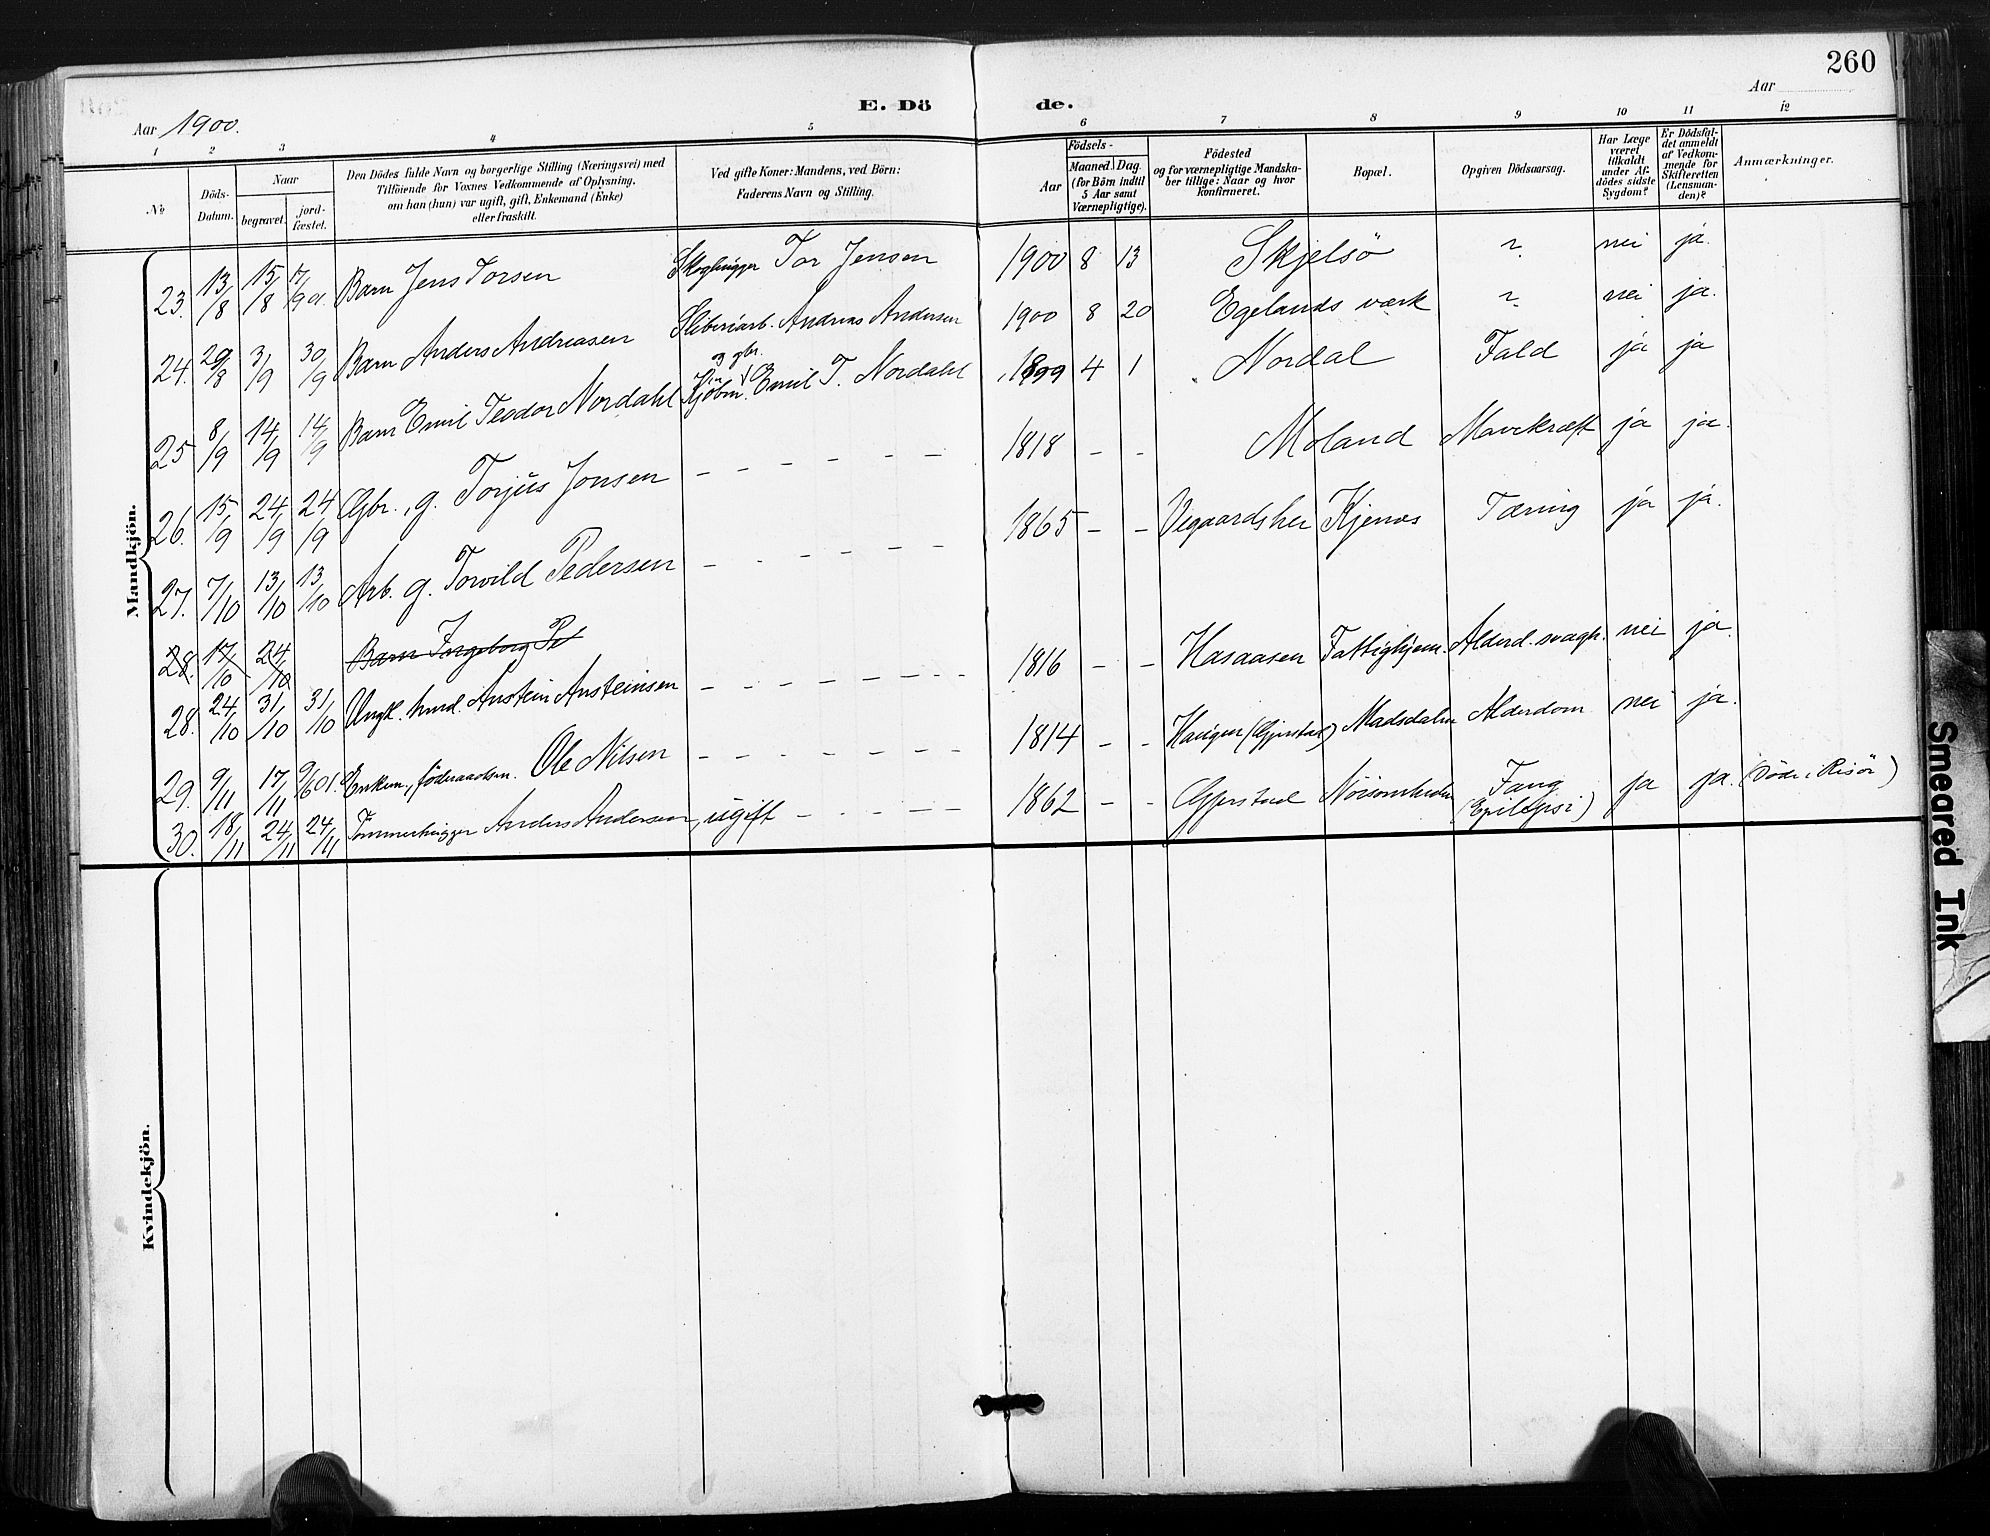 260
E. Dö de.
Aar 1900. Aar
1 2 3 4 5 6 7 8 9 10 11 12
No
Döds-Datum.
Naar
begravet. jord-fæstet.
Den Dödes fulde Navn og borgerlige Stilling (Næringsvei) med
Tilföiende for Voxnes Vedkommende af Oplysning,
om han (hun) var ugift, gift, Enkemand (Enke)
eller fraskilt.
Ved gifte Koner: Mandens, ved Börn:
Faderens Navn og Stilling.
Födsels-
Aar
Maaned. Dag.
(for Börn indtil
5 Aar samt
Værnepligtige).
Födested
og for værnepligtige Mandska-
ber tillige: Naar og hvor
konfirmeret.
Bopæl.
Opgiven Dödsaarsag.
Har Læge
været
tilkaldt
under Af-
dödes sidste
Sygdom?
Er Dödsfal-
det anmeldt
af Vedkom-
mende for
Skifteretten
(Lensman-
den)?
Anmærkninger.
Mandkjön.
23. 13/8 15/8 17/9 01. Barn Jens Torsen Skoghugger Tor Jensen 1900 8 13 Skjelsö ? nei ja.
24. 29/8 3/9 30/9 Barn Anders Andreasen Sliberiarb. Andreas Andersen 1900 8 20 Egelands værk ? nei ja.
25 8/9 14/9 14/9 Barn Emil Teodor Nordahl Kjöbm. og gbr. Emil T. Nordahl 1899 4 1 Nordal Fald ja ja
26. 15/9 24/9 24/9 Gbr., g. Torjus Jonsen – – – – – – 1818 – – Moland Mavekræft ja ja.
27. 7/10 13/10 13/10 Arb. g. Torvild Pedersen – – – – – – 1865 – – Vegaardshei Kjenes Tæring ja ja.
28. 17/10 24/10 Barn Ingeborg Pet
28. 24/10 31/10 31/10 Ungk. Anstein Ansteinsen – – – – – – 1816 – – Hasaasen Fattighjem. Alderd. svagh. nei ja.
29. 9/11 17/11 9/6 01. Enkem., föderaadsm. Ole Nilsen – – – – – – 1814 – – (Gjerstad) Madsdalen Alderdom nei ja.
30. 18/11 24/11 24/11 Tømmerhugger Anders Andersen, ugift – – – – 1862 – – Gjerstad (Epilepsi) ja ja. (Döde i Risör)
Kvindekjön.
Smeared Ink